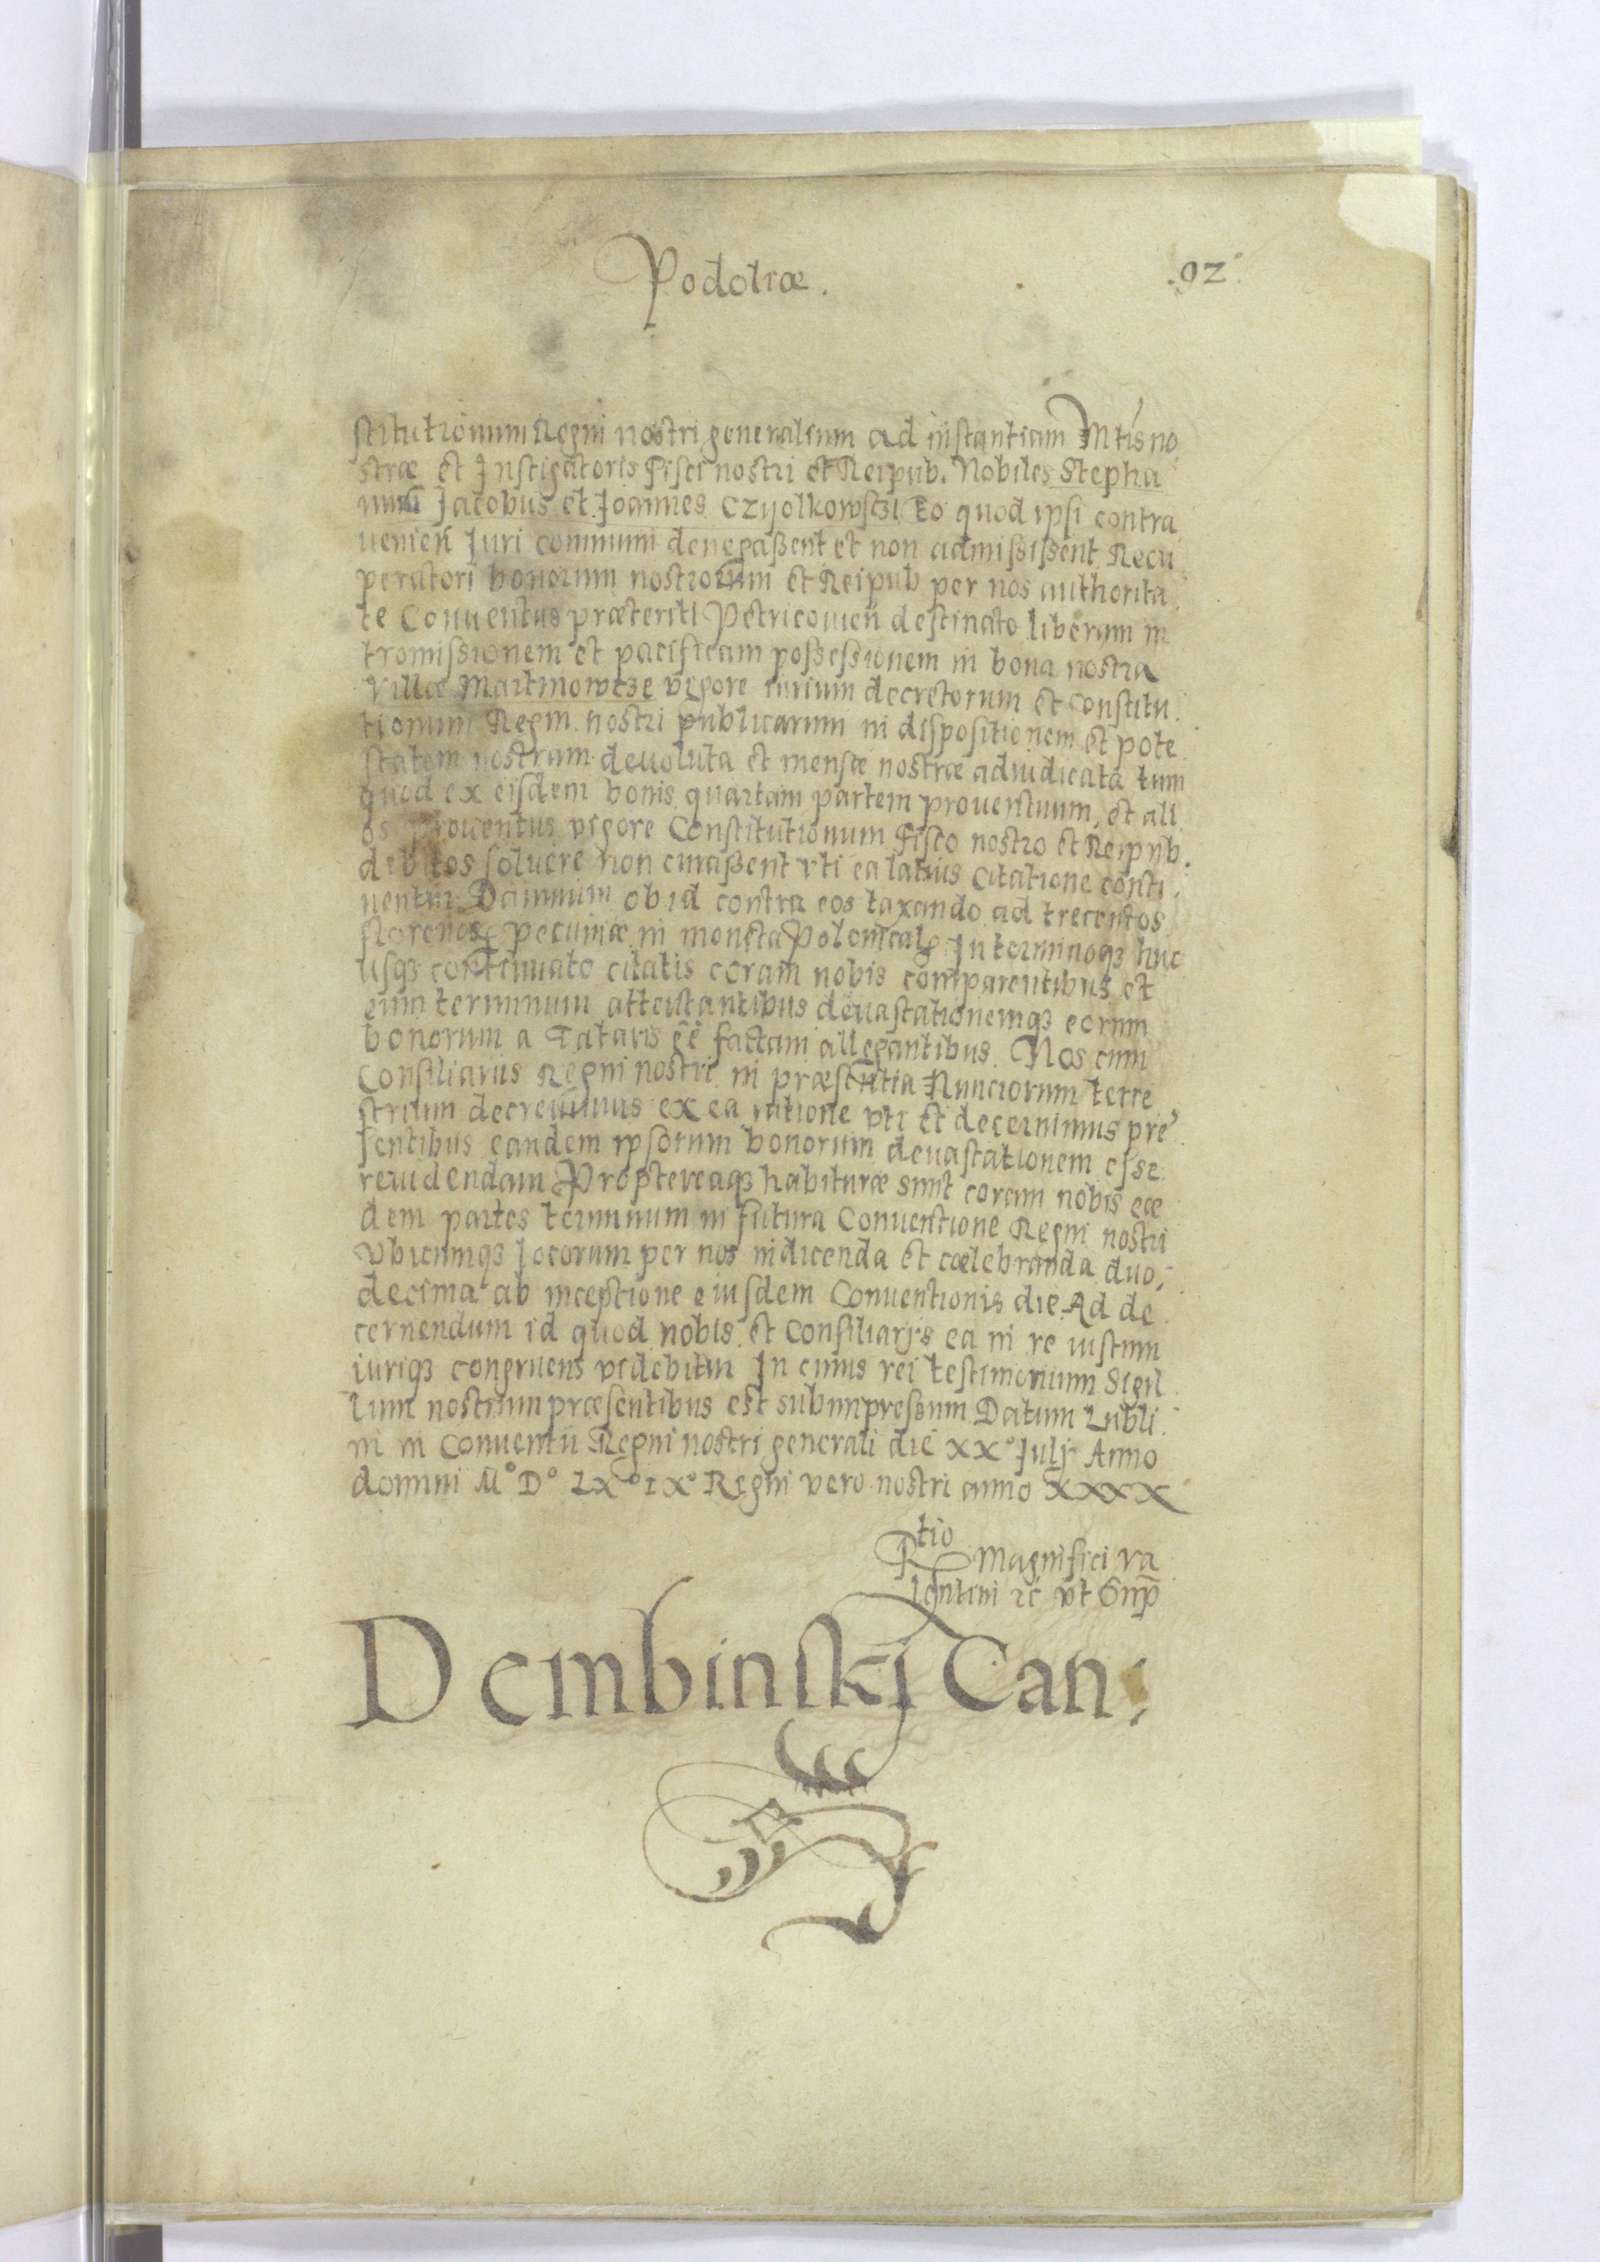 Podoliæ.
.92.
stitutionum Regni nostri generalium ad instantiam Mtis no
stræ et Instigatoris Fisci nostri et Reipub. Nobiles Stepha
num Jacobus et Joannes Czyolkowsczi Eo quod ipsi contra
venien̄ Juri communi denegaßent et non admißißent Recu
peratori bonorum nostrorum et Reipub per nos authorita
te Conventus præteriti Petricovien̄ destinato liberam in
tromissionem et pacificam possessionem in bona nostra
villæ Martinowcze vigore iurium decretorum et Constitu
tionum Regni nostri publicarum in dispositionem et pote
statem nostram devoluta et mensæ nostræ adiudicata tum
quod ex eisdem bonis quartam partem proventuum, et ali
os proventus vigore Constitutionum Fisco nostro et Reipub.
debitos solvere non curaßent vti ea latius Citatione conti
nentur Damnum ob id contra eos taxando ad trecentos
florenos pecuniæ in moneta Polonicalꝭ In terminoqꝫ huc
usqꝫ continuato citatis coram nobis comparentibus et
eum terminum attentantibus devastationemqꝫ eorum
bonorum a Tataris ēē factam allegantibus. Nos cum
Consiliariis Regni nostri in præsentia Nunciorum terre
strium decrevimus ex ea ratione vti et decernimus pre
sentibus eandem ipsorum bonorum devastationem esse
revidendam Proptereaqꝫ habituræ sunt coram nobis eæ
dem partes terminum in futura Conventione Regni nostri
Vbicumqꝫ locorum per nos indicenda et cælebranda duo,
decima ab inceptione eiusdem Conventionis die Ad de
cernendum id quod nobis et Consiliarijs ea in re iustum
iuriqꝫ congruens videbitur In cuius rei testimonium Sigil
lum nostrum præsentibus est subimpreßum Datum Lubli
ni in Conventu Regni nostri generali die XX° Julij Anno
domini M° D° LX° IX° Regni vero nostri anno XXXX
Rtio Magnifici Va
lentini ꝛc̄ vt Sup̄
Dembinskj Can;